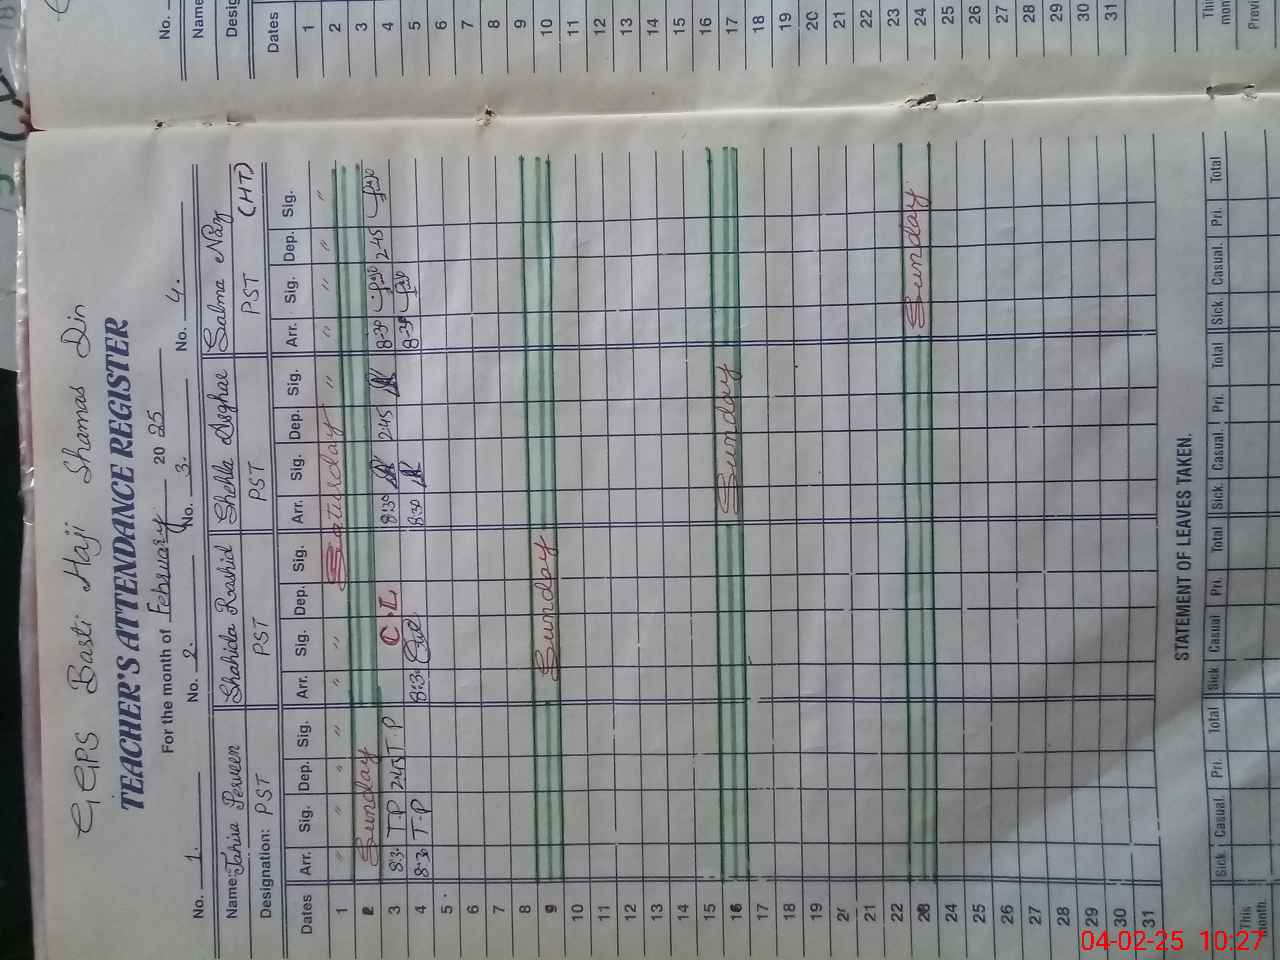 GGPS Basti Haji Shamas Din
TEACHER'S ATTENDANCE REGISTER
For the month of February 2025
No. 1. No. 2. No. 3. No. 4.
Name: Tahira Perveen Shahida Rashid Shehla Asghar Salma Naz
Designation: PST PST PST PST (HT)
Dates Arr. Sig. Dep. Sig. Arr. Sig. Dep. Sig. Arr. Sig. Dep. Sig. Arr. Sig. Dep. Sig.
1 " " " " " " Saturday " " " " "
2 Sunday
3 8:30 T.P 2:45 T.P C.L 8:30 2:45 8-30 2-45
4 8:30 T.P 8:30 8:30 8-30
5
6
7
8
9 Sunday
10
11
12
13
14
15
16 Sunday
17
18
19
2
21
22
23 Sunday
24
25
26
27
28
29
30
31
STATEMENT OF LEAVES TAKEN.
Sick Casual. Pri. Total Sick Casual Pri. Total Sick. Casual. Pri. Total Sick. Casual. Pri. Total
This month.
No.
Name
Desig
Dates
1
2
3
4
5
6
7
8
9
10
11
12
13
14
15
16
17
18
19
20
21
22
23
24
25
26
27
28
29
30
31
04-02-25 10:27